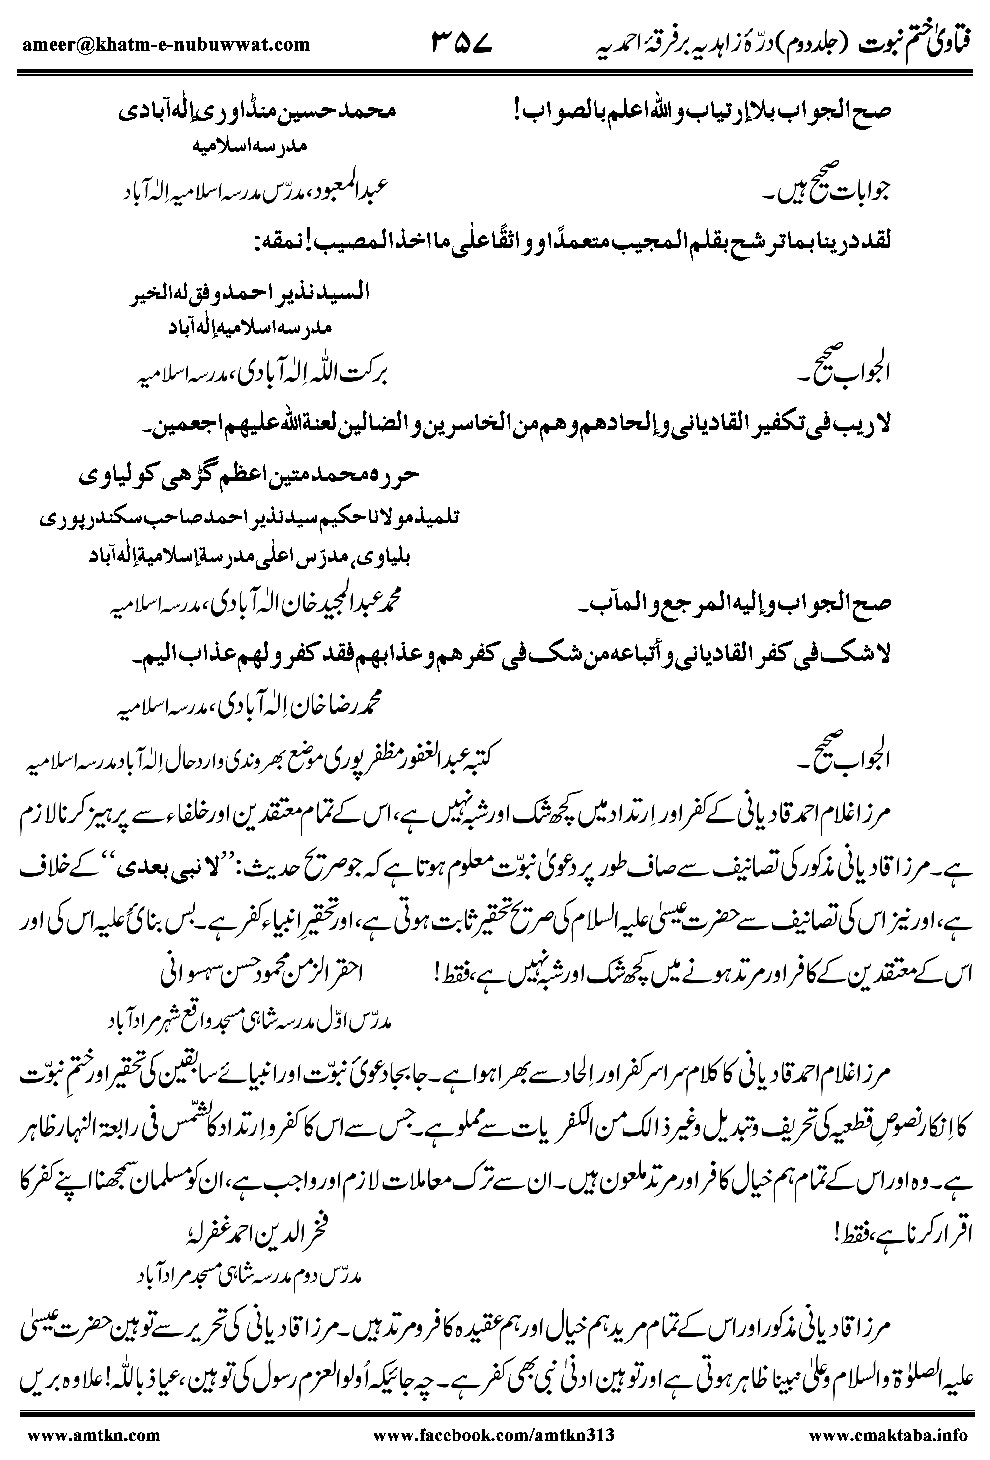 فتاویٰ ختم نبوت (جلد دوم) درّۂ زاہدیہ بر فرقۂ احمدیہ ۳۵۷ ameer@khatm-e-nubuwwat.com
صح الجواب بلا إرتیاب والله اعلم بالصواب! محمد حسین منڈاوری إلٰه آبادی
مدرسه اسلامیه
جوابات صحیح ہیں۔ عبدالمعبود، مدرّس مدرسہ اسلامیہ إلٰہ آباد
لقد درینا بما ترشح بقلم المجیب متعمدًا و واثقًا علٰی ما اخذ المصیب! نمقه:
السید نذیر احمد وفق له الخیر
مدرسه اسلامیه إلٰه آباد
الجواب صحیح۔ برکت اللہ إلٰہ آبادی، مدرسہ اسلامیہ
لا ریب فی تکفیر القادیانی وإلحادهم وهم من الخاسرین و الضالین لعنة الله علیهم اجمعین۔
حرره محمد متین اعظم گڑھی کولیاوی
تلمیذ مولانا حکیم سید نذیر احمد صاحب سکندرپوری
بلیاوی، مدرّس اعلٰی مدرسة إسلامیة إلٰه آباد
صح الجواب وإلیه المرجع والمآب۔ محمد عبدالمجید خان الٰہ آبادی، مدرسہ اسلامیہ
لا شک فی کفر القادیانی و أتباعه من شک فی کفرهم و عذابهم فقد کفر و لهم عذاب الیم۔
محمد رضا خان إلٰہ آبادی، مدرسہ اسلامیہ
الجواب صحیح۔ کتبہ عبدالغفور مظفرپوری موضع بھروندی وارد حال إلٰہ آباد مدرسہ اسلامیہ
مرزا غلام احمد قادیانی کے کفر اور اِرتداد میں کچھ شک اور شبہ نہیں ہے، اس کے تمام معتقدین اور خلفاء سے پرہیز کرنا لازم
ہے۔ مرزا قادیانی مذکور کی تصانیف سے صاف طور پر دعویٰ نبوّت معلوم ہوتا ہے کہ جو صریح حدیث: ’’لا نبی بعدی‘‘ کے خلاف
ہے، اور نیز اس کی تصانیف سے حضرت عیسیٰ علیہ السلام کی صریح تحقیر ثابت ہوتی ہے، اور تحقیرِ انبیاء کفر ہے۔ بس بنائً علیہ اس کی اور
اس کے معتقدین کے کافر اور مرتد ہونے میں کچھ شک اور شبہ نہیں ہے، فقط! احقر الزمن محمود حسن سہسوانی
مدرّس اوّل مدرسہ شاہی مسجد واقع شہر مراد آباد
مرزا غلام احمد قادیانی کا کلام سراسر کفر اور اِلحاد سے بھرا ہوا ہے۔ جابجا دعویٔ نبوّت اور انبیائے سابقین کی تحقیر اور ختمِ نبوّت
کا اِنکار نصوصِ قطعیہ کی تحریف و تبدیل وغیر ذالک من الکفریات سے مملو ہے۔ جس سے اس کا کفر و اِرتداد کالشمّس فی رابعۃ النہار ظاہر
ہے۔ وہ اور اس کے تمام ہم خیال کافر اور مرتد ملعون ہیں۔ ان سے ترک معاملات لازم اور واجب ہے، ان کو مسلمان سمجھنا اپنے کفر کا
اقرار کرنا ہے، فقط! فخر الدین احمد غفرلہٗ
مدرّس دوم مدرسہ شاہی مسجد مراد آباد
مرزا قادیانی مذکور اور اس کے تمام مرید ہم خیال اور ہم عقیدہ کافر و مرتد ہیں۔ مرزا قادیانی کی تحریر سے توہین حضرت عیسیٰ
علیہ الصلوٰۃ والسلام وعلیٰ نبینا ظاہر ہوتی ہے اور توہین ادنیٰ نبی بھی کفر ہے۔ چہ جائیکہ اُولوالعزم رسول کی توہین، عیاذ باللّٰہ! علاوہ بریں
www.amtkn.com www.facebook.com/amtkn313 www.cmaktaba.info